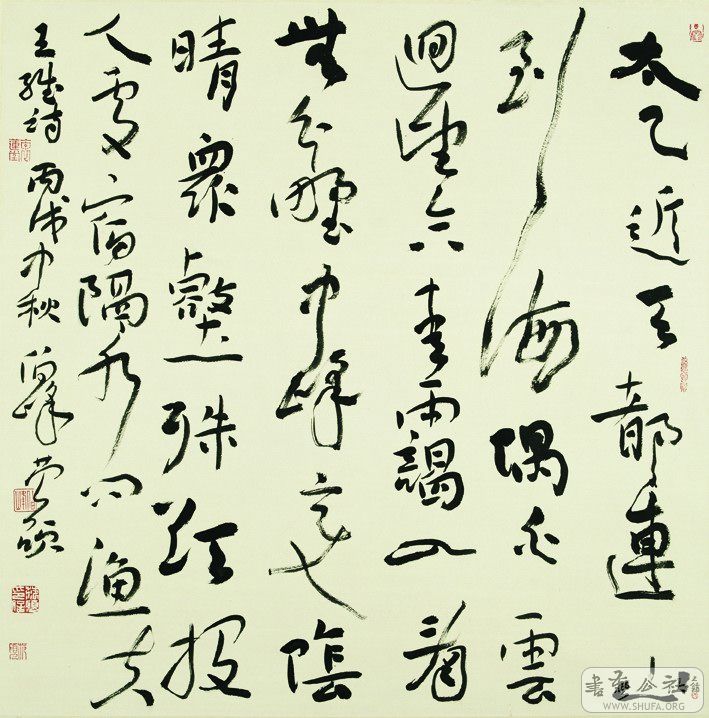 太乙近天都連山
到海隅白雲
迴望合青靄入看
無分野中峰變陰
晴眾壑殊欲投
人處宿隔水問漁夫
王維詩 丙戌中秋
書法公社
WWW.SHUFA.ORG